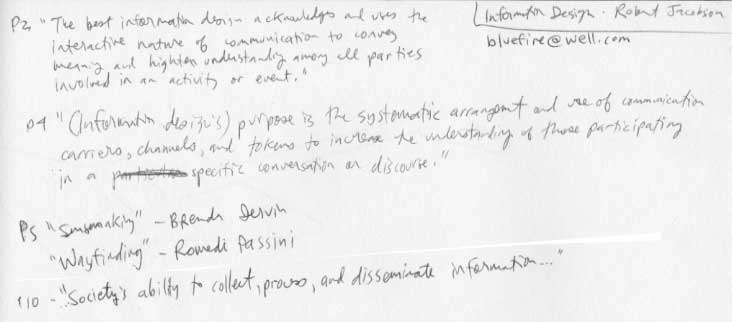 Information Design. Robert Jacobson
bluefire@well.com
P2 "The best information design acknowledges and uses the
interactive nature of communication to convey
meaning and highten understanding among all parties
involved in an activity or event."
p4 "(Information design's) purpose is the systematic arrangemt and use of communication
carriers, channels, and tokens to increase the understanding of those participating
in a specific conversation or discourse."
P5 "Sensemaking" - Brenda Dervin
"Wayfinding" - Romedi Passini
P10 - "Society's ability to collect, process, and disseminate information..."